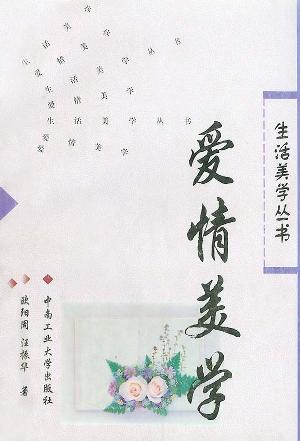 生活美学
爱情美学
生活美学丛书
爱情美学
生活美学丛书
爱情美学
生活美学丛书
爱情美学
中南工业大学出版社
欧阳周 汪振华 著